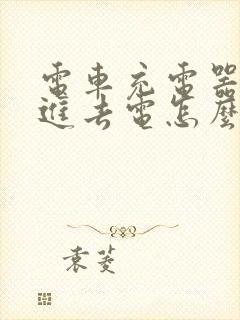 電車充電器
進去電怎麼
袁菱